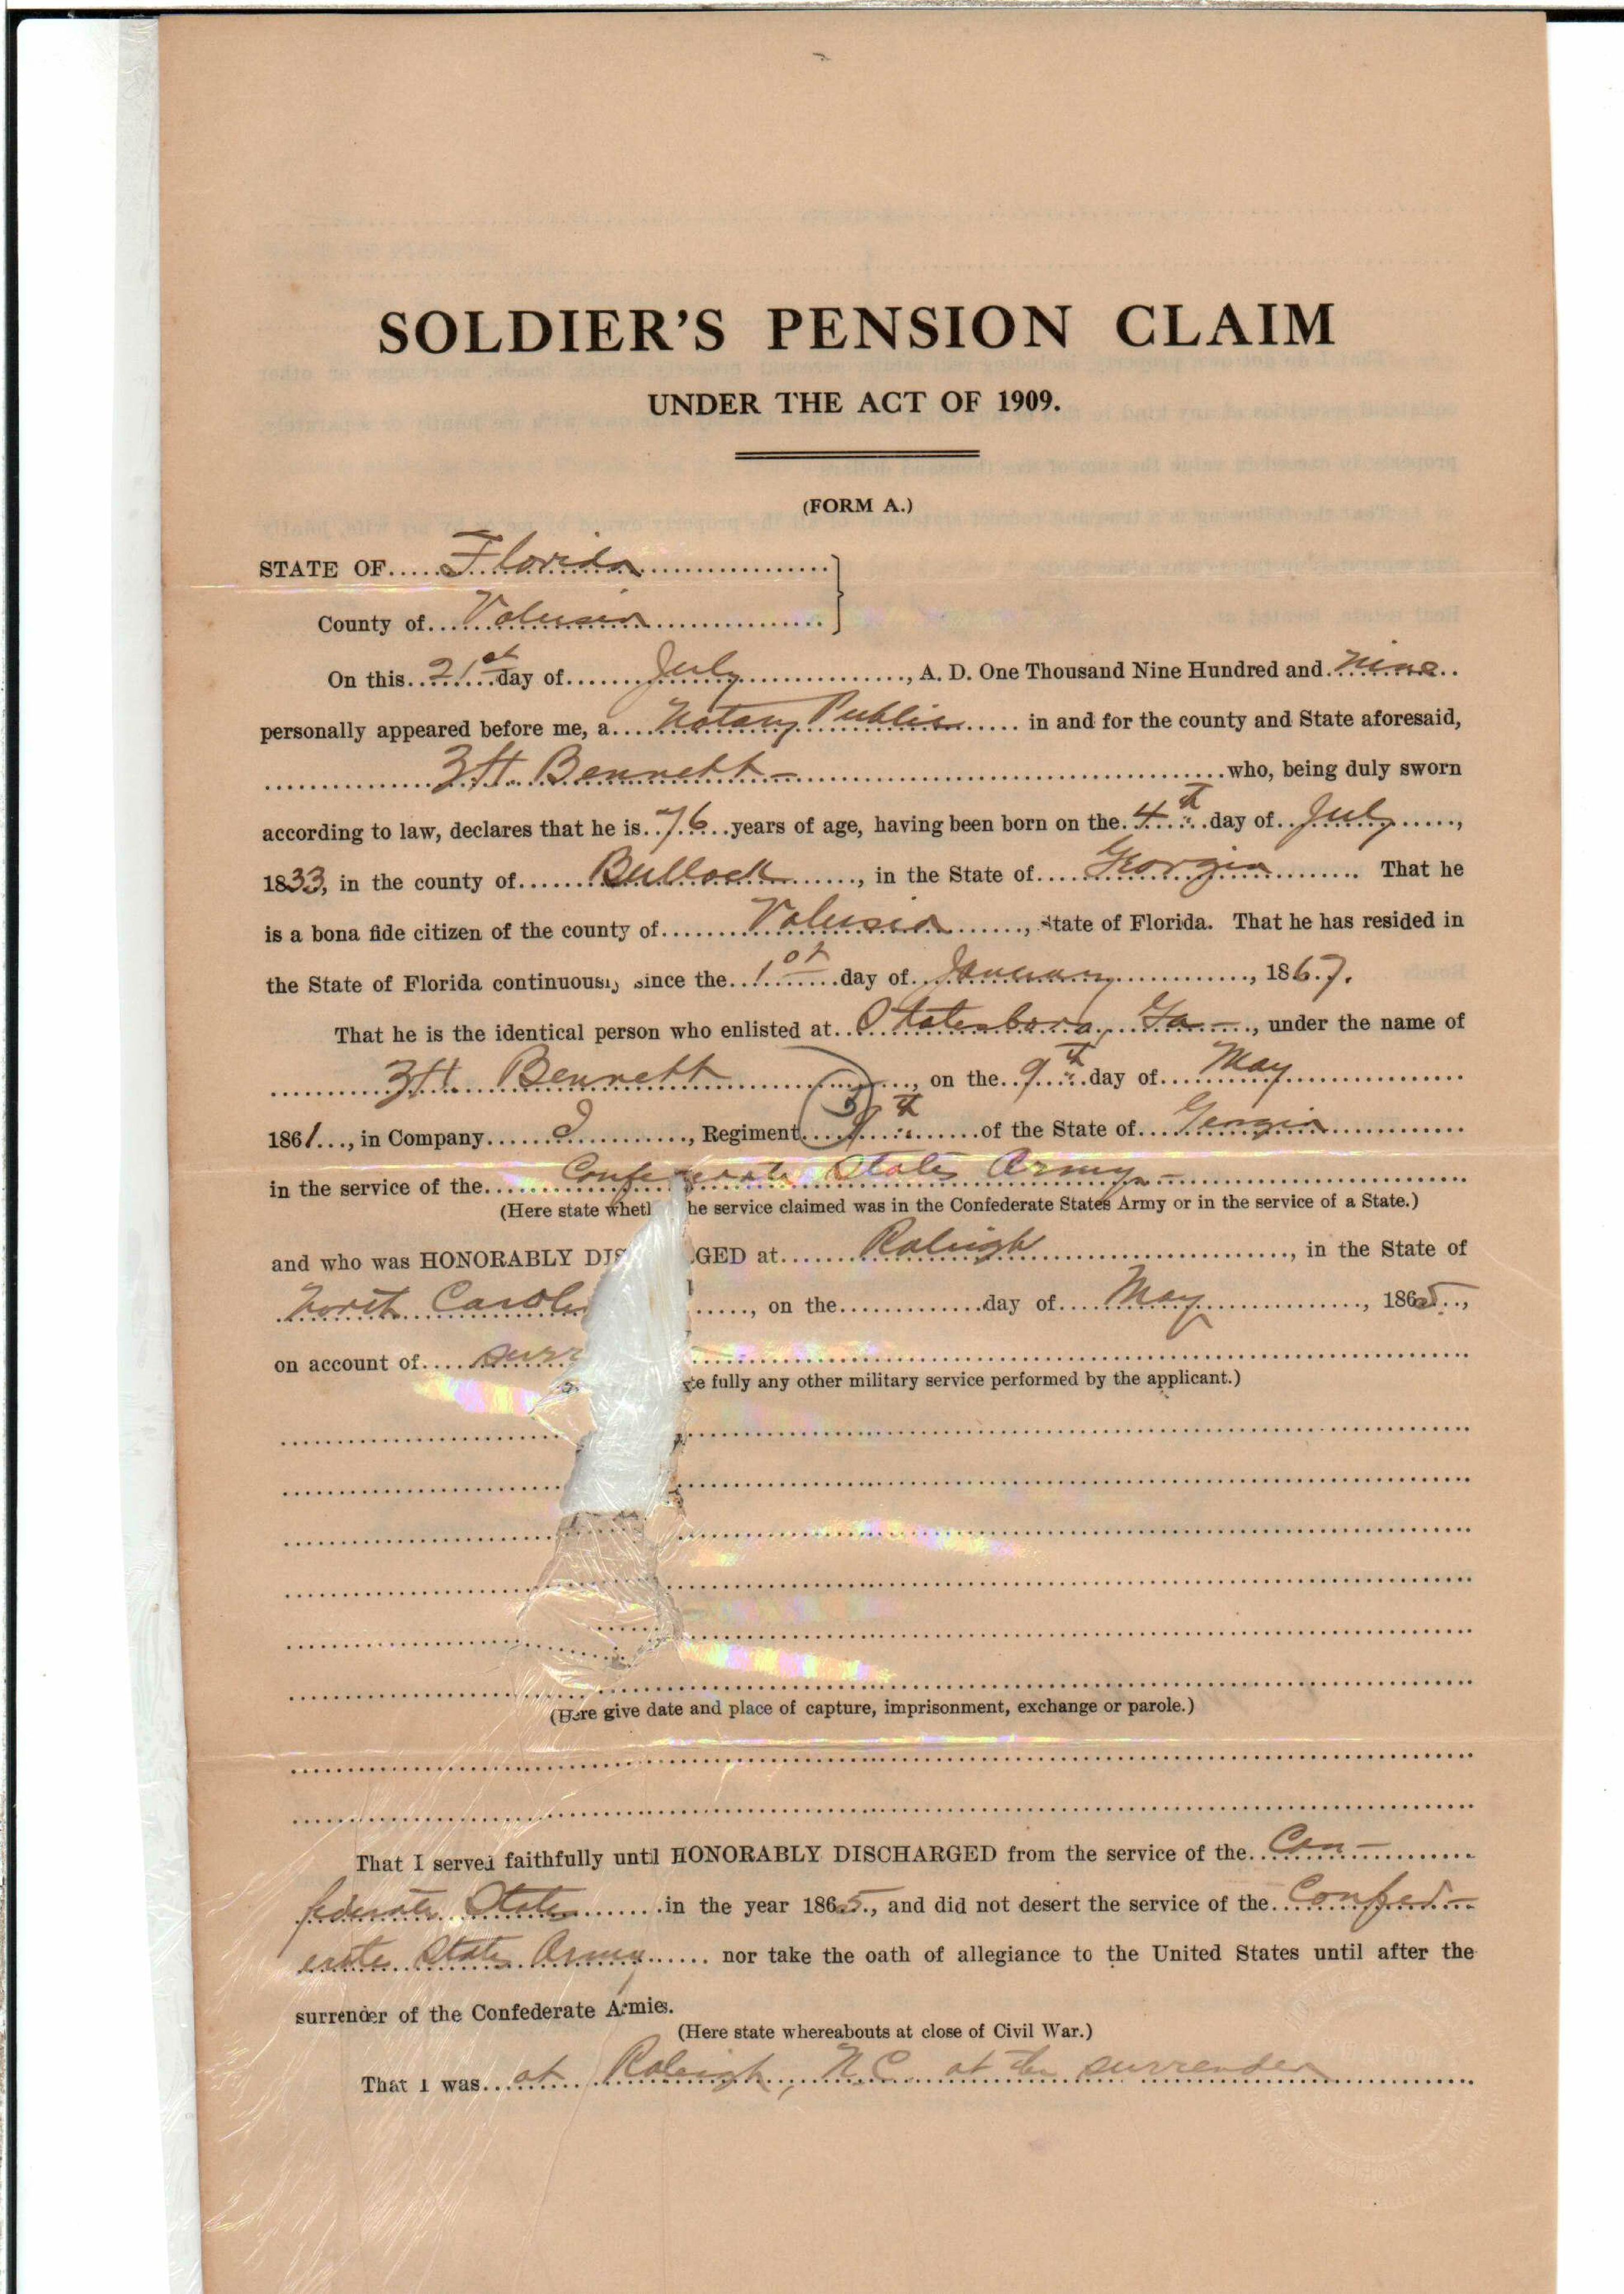 SOLDIER'S PENSION CLAIM
UNDER THE ACT OF 1909.
(FORM A.)
STATE OF Florida
County of Volusia
On this 21st day of July, A. D. One Thousand Nine Hundred and Nine
personally appeared before me, a Notary Public in and for the county and State aforesaid,
Bennett who, being duly sworn
according to law, declares that he is 76 years of age, having been born on the 4th day of July,
1833, in the county of Bullock, in the State of Georgia. That he
is a bona fide citizen of the county of Volusia, State of Florida. That he has resided in
the State of Florida continuously since the 1st day of January, 1867.
That he is the identical person who enlisted at Statesboro, Ga, under the name of
Bennett, on the 9th day of May
1861, in Company, Regiment of the State of Georgia
in the service of the Confederate States Army
(Here state whet he service claimed was in the Confederate States Army or in the service of a State.)
and who was HONORABLY DIS GED at Raleigh, in the State of
North Caroli, on the day of May, 1865,
on account of surr
te fully any other military service performed by the applicant.)
(Here give date and place of capture, imprisonment, exchange or parole.)
That I served faithfully until HONORABLY DISCHARGED from the service of the Con-
federate States in the year 1865, and did not desert the service of the Confed-
erate State Army nor take the oath of allegiance to the United States until after the
surrender of the Confederate Armies.
(Here state whereabouts at close of Civil War.)
That I was at Raleigh, N.C. at the surrender